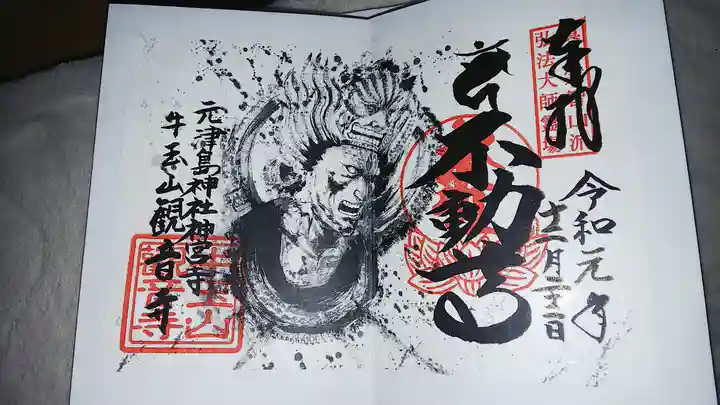 奉拝
弘法大師霊場
令和元年
十二月二十二日
不動
元津島神社神宮寺
牛玉山観音寺